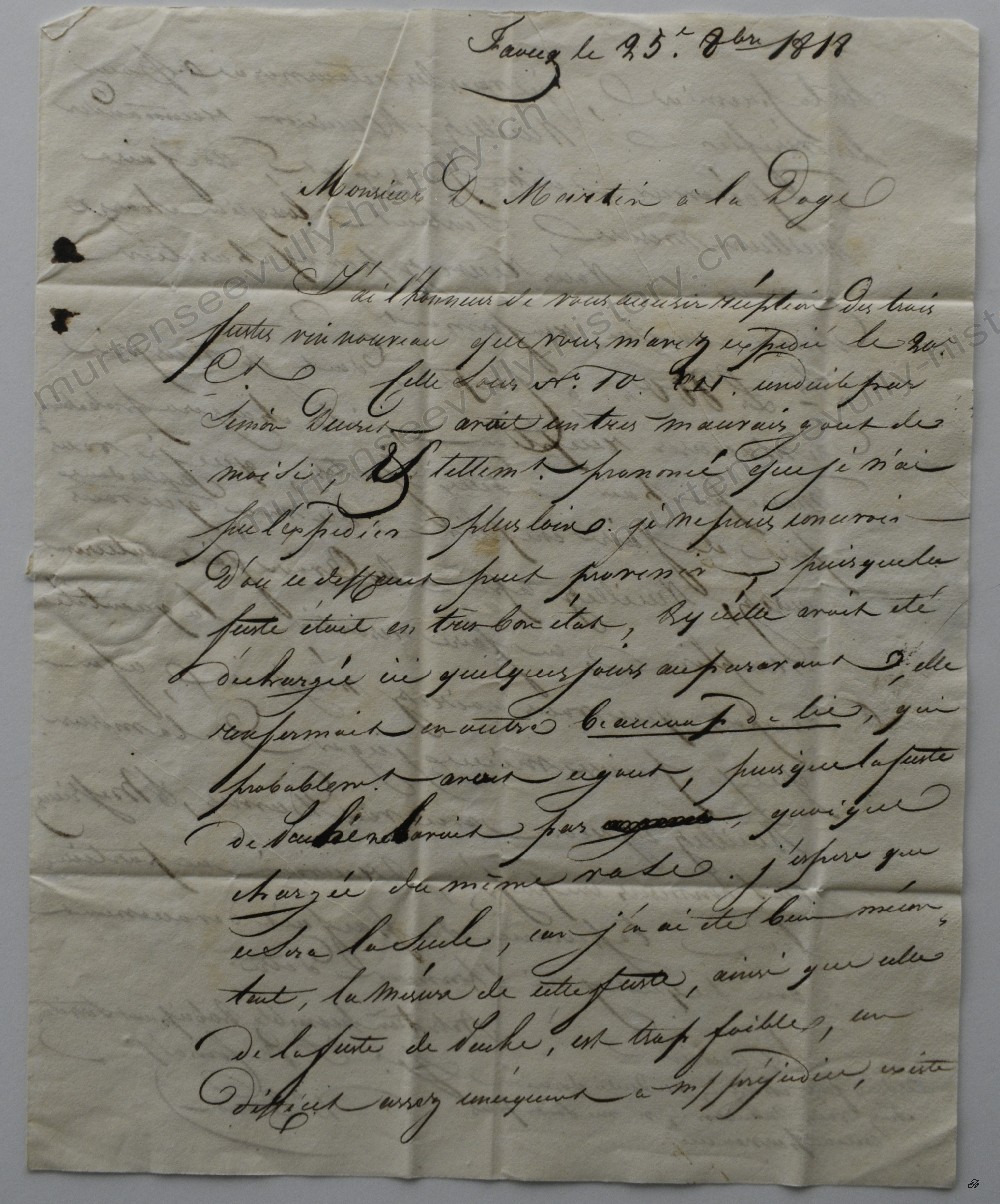 Faoug le 25.e 8bre 1818
Monsieur D. Martin à la Doge
J'ai l'honneur de vous acuser réception des trois
fustes vin nouveau que vous m'avez expedié le 20.
Ct Celle sous No. 10. conduite par
Simon Duvist avait un tres mauvais gout de
moisi, tellemt. prononcé que je n'ai
pu l'éxpedier plus loin. je ne puis concevoir
D'ou ce deffaut peut provenir, puisque la
fuste était en tres bon état, & qu'elle avait été
déchargée ici quelques jours auparavant, elle
renfermait en outre beaucoup de lie, qui
probablemt. avait ce gout, puisque la fuste
de n'avait pas, quoique
chargée du même vase. j'espere que
ce sera la seule, car j'en ai été bien mécon-
tent, la mésure de cette fuste, ainsi que celle
de la fuste de, est trop faible, un
difficit assez conséquent a m/ préjudice, existe
murtenseevully-history.ch
murtenseevully-history.ch
murtenseevully-history.ch